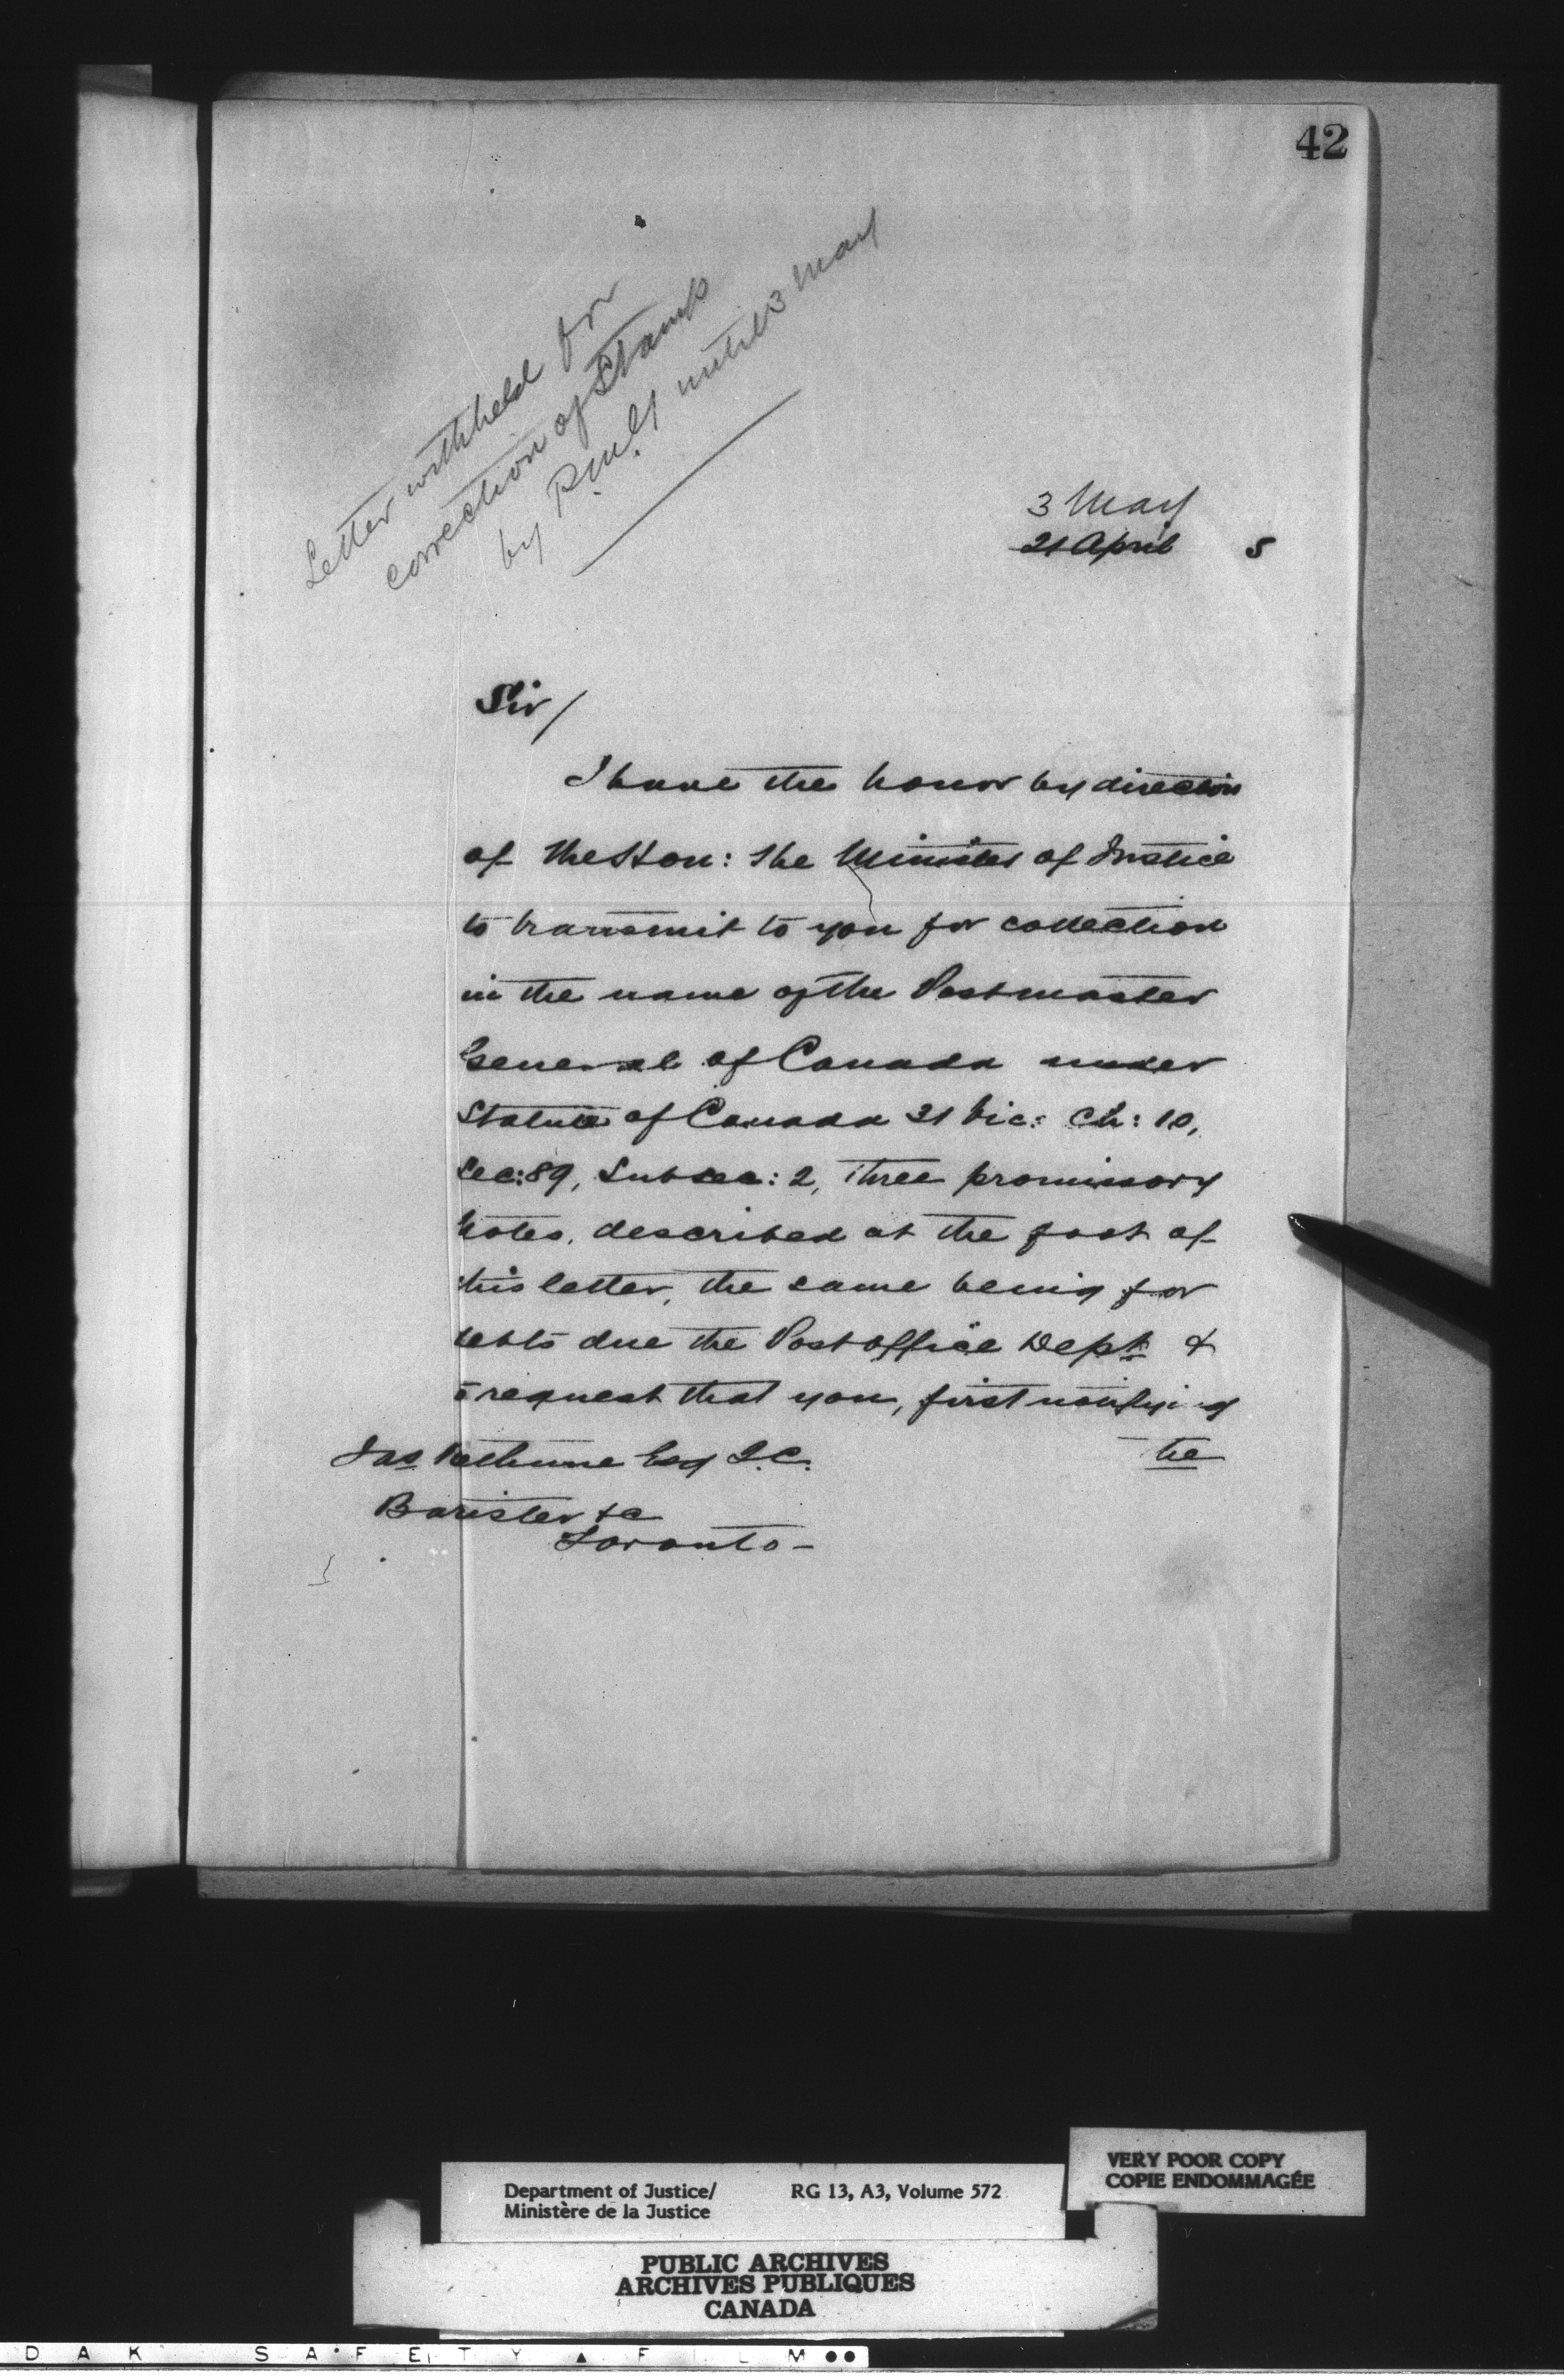 42
Letter withheld for
correction of Stamp
by P.M.G. until 3 May
3 May
21 April 5
Sir/
I have the honor by direction
of the Hon: the Minister of Justice
to transmit to you for collection
in the name of the Postmaster
General of Canada under
Statute of Canada 31 Vic: Ch: 10,
Sec: 89, Subsec: 2, three promissory
notes, described at the foot of
this letter, the same being for
debts due the Post office Dept &
to request that you, first notifying
the
Jas Bethune Esq Q.C.
Barister &c
Toronto -
Department of Justice/ RG 13, A3, Volume 572
Ministère de la Justice
VERY POOR COPY
COPIE ENDOMMAGÉE
PUBLIC ARCHIVES
ARCHIVES PUBLIQUES
CANADA
DAK SAFETY FILM